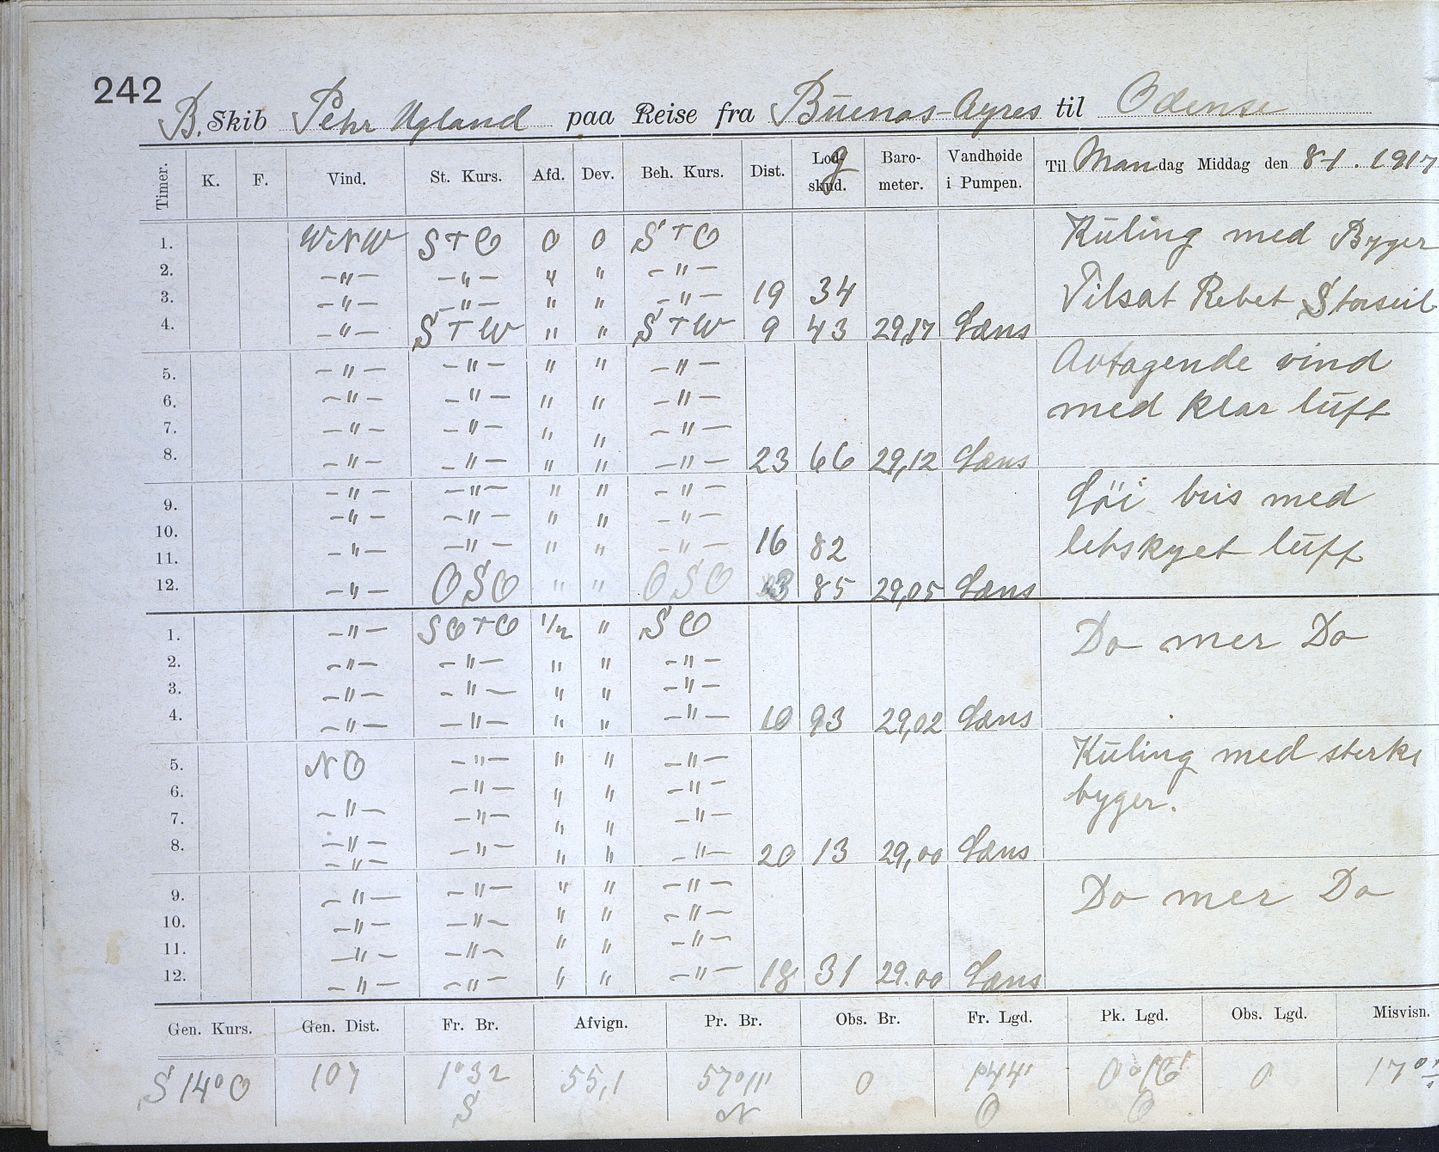 242
B. Skib Pehr Ugland paa Reise fra Buenos-Ayres til Odense
Timer. K. F. Vind. St. Kurs. Afd. Dev. Beh. Kurs. Dist. Log Lodskud. Barometer. Vandhøide i Pumpen. Til Mandag Middag den 8-1. 1917
1. WNW StO 0 0 StO Kuling med Byger
2. -"- -"- " " -"-
3. -"- -"- " " -"- 19 34 Tilsat Rebet Storseil
4. -"- StW " " StW 9 43 29,17 Læns
5. -"- -"- " " -"- Avtagende vind
6. -"- -"- " " -"- med klar luft
7. -"- -"- " " -"-
8. -"- -"- " " -"- 23 66 29,12 Læns
9. -"- -"- " " -"- Løi bris med
10. -"- -"- " " -"- 16 82
11. -"- -"- " " -"- letskyet luft
12. -"- OSO " " OSO 3 85 29,05 Læns
1. -"- SOtO 1/2 " SO Do mer Do
2. -"- -"- " " -"-
3. -"- -"- " " -"-
4. -"- -"- " " -"- 10 93 29,02 Læns
5. NO -"- " " -"- Kuling med sterke
6. -"- " " -"- byger.
7. -"- -"- " " -"-
8. -"- -"- " " -"- 20 13 29,00 Læns
-"-
9. -"- -"- " " -"- Do mer Do
10. -"- -"- " " -"-
11. -"- -"- " " -"-
12. -"- -"- " " -"- 18 31 29.00 Læns
Gen. Kurs. Gen. Dist. Fr. Br. Afvign. Pr. Br. Obs. Br. Fr. Lgd. Pk. Lgd. Obs. Lgd. Misvisn.
S 14° O 107 1°32 S 55,1 57°11' N 0 1°44' O 0°16' O 0 17°